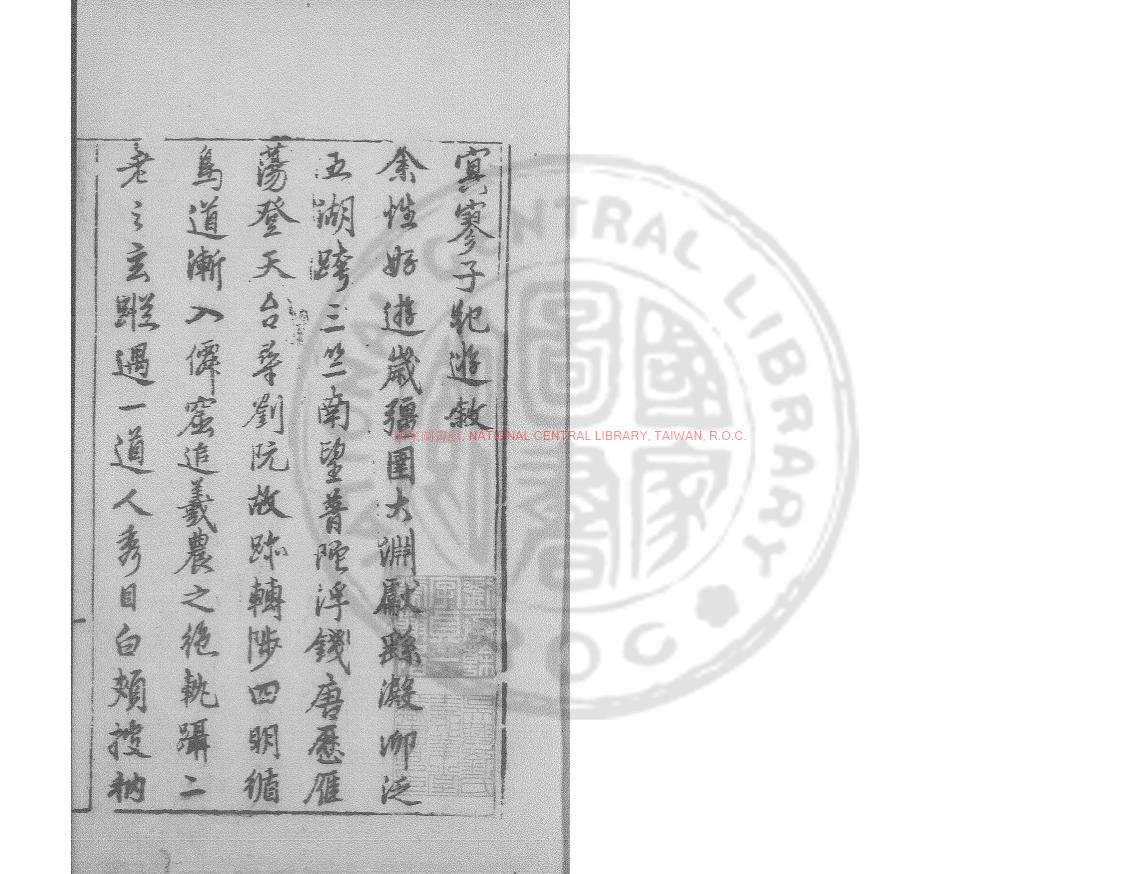 冥寥子記遊敘
余性好遊歲彊圉大淵獻繇澱泖泛
五湖跨三竺南望普陀浮錢唐歷雁
蕩登天台尋劉阮故跡轉陟四明循
鳥道漸入僊窟追羲農之絕軌躡二
老之玄蹤遇一道人秀目白頰披衲
NATIONAL CENTRAL LIBRARY, TAIWAN, R.O.C.
NATIONAL CENTRAL LIBRARY ROC
國家圖書